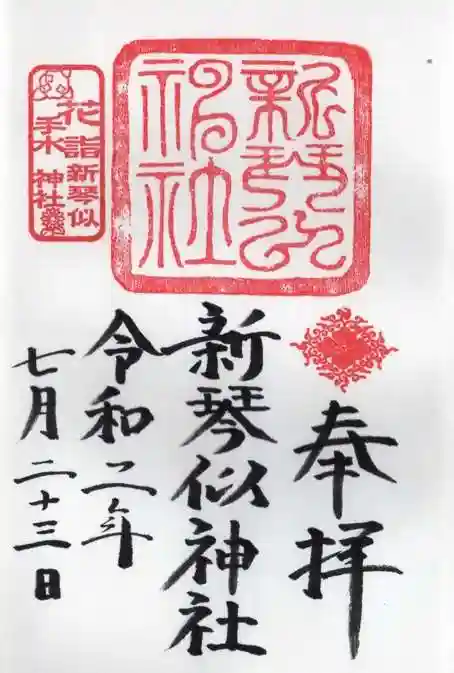 奉拝
新琴似神社
令和二年
七月二十三日
新琴似
神社
花手水詣
新琴似
神社